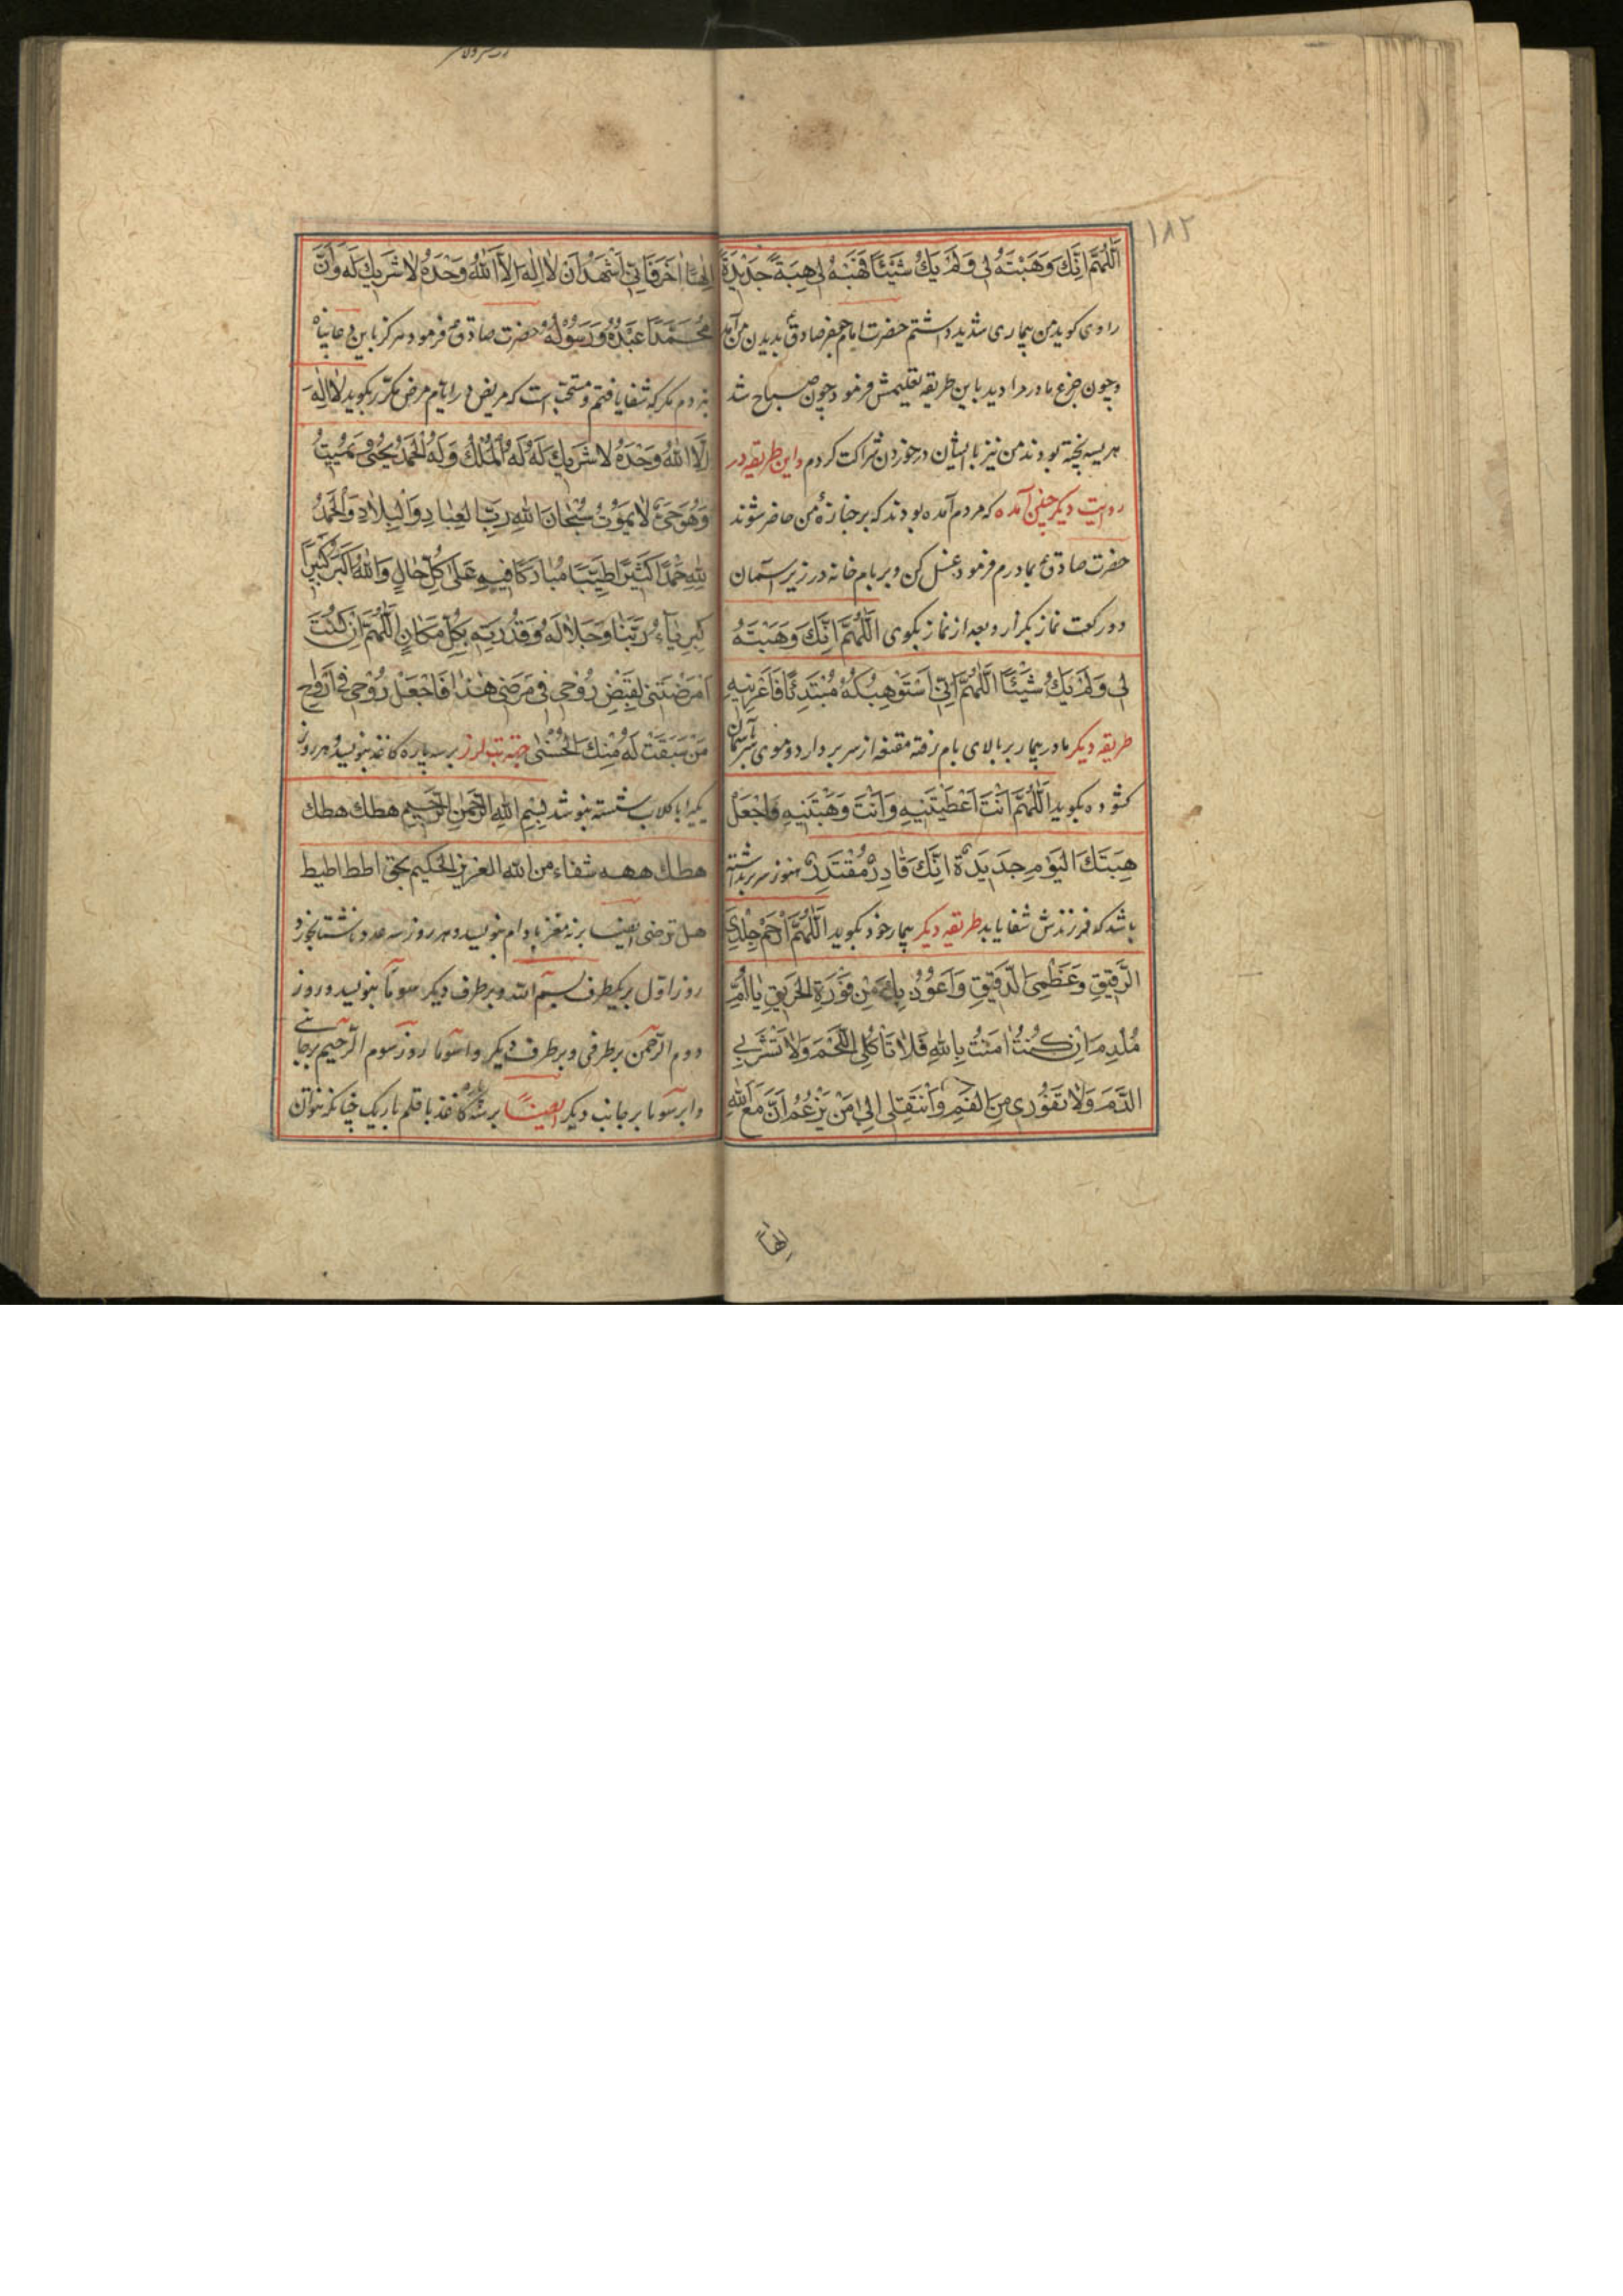 ١٨٢
اَللّٰهُمَّ اِنَّكَ وَهَبْتَهُ لِى وَلَمْ يَكُ شَيْئًا فَهَبْهُ لِى هِبَةً جَدِيْدَةً
راوی کوید من بیماری شدید داشتم حضرت امام جعفر صادق ع بدیدن من آمد
و چون جزع مادر مرا دید باین طریقه تعلیمش فرمود چون صباح شد
هریسه پخته بودند من نیز با ایشان در خوردن شراکت کردم و این طریقه در
روایت دیکر چنین آمده که مردم آمده بودند که بر جنازهٔ من حاضر شوند
حضرت صادق ع بمادرم فرمود غسل کن و بر بام خانه در زیر آسمان
دو رکعت نماز بکزار و بعد از نماز بکوی اَللّٰهُمَّ اِنَّكَ وَهَبْتَهُ
لِى وَلَمْ يَكُ شَيْئًا اَللّٰهُمَّ اِنِّى اَسْتَوْهِبُكَهُ مُبْتَدِئًا فَاَعِرْنِيهِ
طریقه دیکر مادر بیمار بر بالای بام رفته مقنعه از سر بردارد و موی سر بآسمان
کشوده بکوید اَللّٰهُمَّ اَنْتَ اَعْطَيْتَنِيهِ وَاَنْتَ وَهَبْتَنِيهِ فَاجْعَلْ
هِبَتَكَ الْيَوْمَ جَدِيَدةً اِنَّكَ قَادِرٌ مُقْتَدِرٌ هنوز سر برنداشته
باشد که فرزندش شفا یابد طریقه دیکر بیمار خود بکوید اَللّٰهُمَّ ارْحَمْ جِلْدِىَ
الرَّقِيقَ وَعَظْمِىَ الدَّقِيقَ وَاَعُوْذُ بِكَ مِنْ فَوْرَةِ الْحَرِيقِ يَا اُمَّ
مُلْدِمَ اِنْ كُنْتِ اٰمَنْتِ بِاللّٰهِ فَلَا تَاْكُلِى اللَّحْمَ وَلَا تَشْرَبِى
الدَّمَ وَلَا تَفُوْرِى مِنَ الْفَمِ وَانْتَقِلِى اِلٰى مَنْ يَزْعُمُ اَنَّ مَعَ اللّٰهِ
اِلٰهًا
اِلٰهًا اٰخَرَ فَاِنِّى اَشْهَدُ اَنْ لَا اِلٰهَ اِلَّا اللّٰهُ وَحْدَهُ لَا شَرِيكَ لَهُ وَاَنَّ
مُحَمَّدًا عَبْدُهُ وَرَسُوْلُهُ حضرت صادق ع فرمود هرکز باین دعا پناه
نبردم مکر که شفا یافتم و مستحب است که مریض در ایام مرض مکرّر بکوید لَا اِلٰهَ
اِلَّا اللّٰهُ وَحْدَهُ لَا شَرِيكَ لَهُ لَهُ الْمُلْكُ وَلَهُ الْحَمْدُ يُحْيِى وَيُمِيتُ
وَهُوَ حَىٌّ لَا يَمُوْتُ سُبْحَانَ اللّٰهِ رَبِّ الْعِبَادِ وَالْبِلَادِ وَالْحَمْدُ
لِلّٰهِ حَمْدًا كَثِيرًا طَيِّبًا مُبَارَكًا فِيهِ عَلٰى كُلِّ حَالٍ وَاللّٰهُ اَكْبَرُ كَبِيرًا
كِبْرِيَاءُ رَبِّنَا وَجَلَالُهُ وَقُدْرَتِهِ بِكُلِّ مَكَانٍ اَللّٰهُمَّ اِنْ كُنْتَ
اَمْرَضْتَنِى لِقَبْضِ رُوْحِى فِى مَرَضِى هٰذَا فَاجْعَلْ رُوْحِى فِى اَرْوَاحِ
مَنْ سَبَقَتْ لَهُ مِنْكَ الْحُسْنٰى جهة تب لرز بر سه پاره کاغذ بنویسد و هر روز
یکیرا با کلاب شسته بنوشد بِسْمِ اللّٰهِ الرَّحْمٰنِ الرَّحِيمِ هطك هطك
هطك ههه شفاء من الله العزيز الحكيم بحق اططا طيط
هل توضى ایضا بر نه مغز بادام بنویسد و هر روز سه عدد ناشتا بخورد
روز اول بر یکطرف بسم الله و بر طرف دیکر سوما بنویسد و روز
دوم الرحمن بر طرفی و بر طرف دیکر واسوما روز سوم الرحیم بر جانبی
و ابرسوما بر جانب دیکر ایضًا بر سه کاغذ با قلم باریک چنانکه نتوان